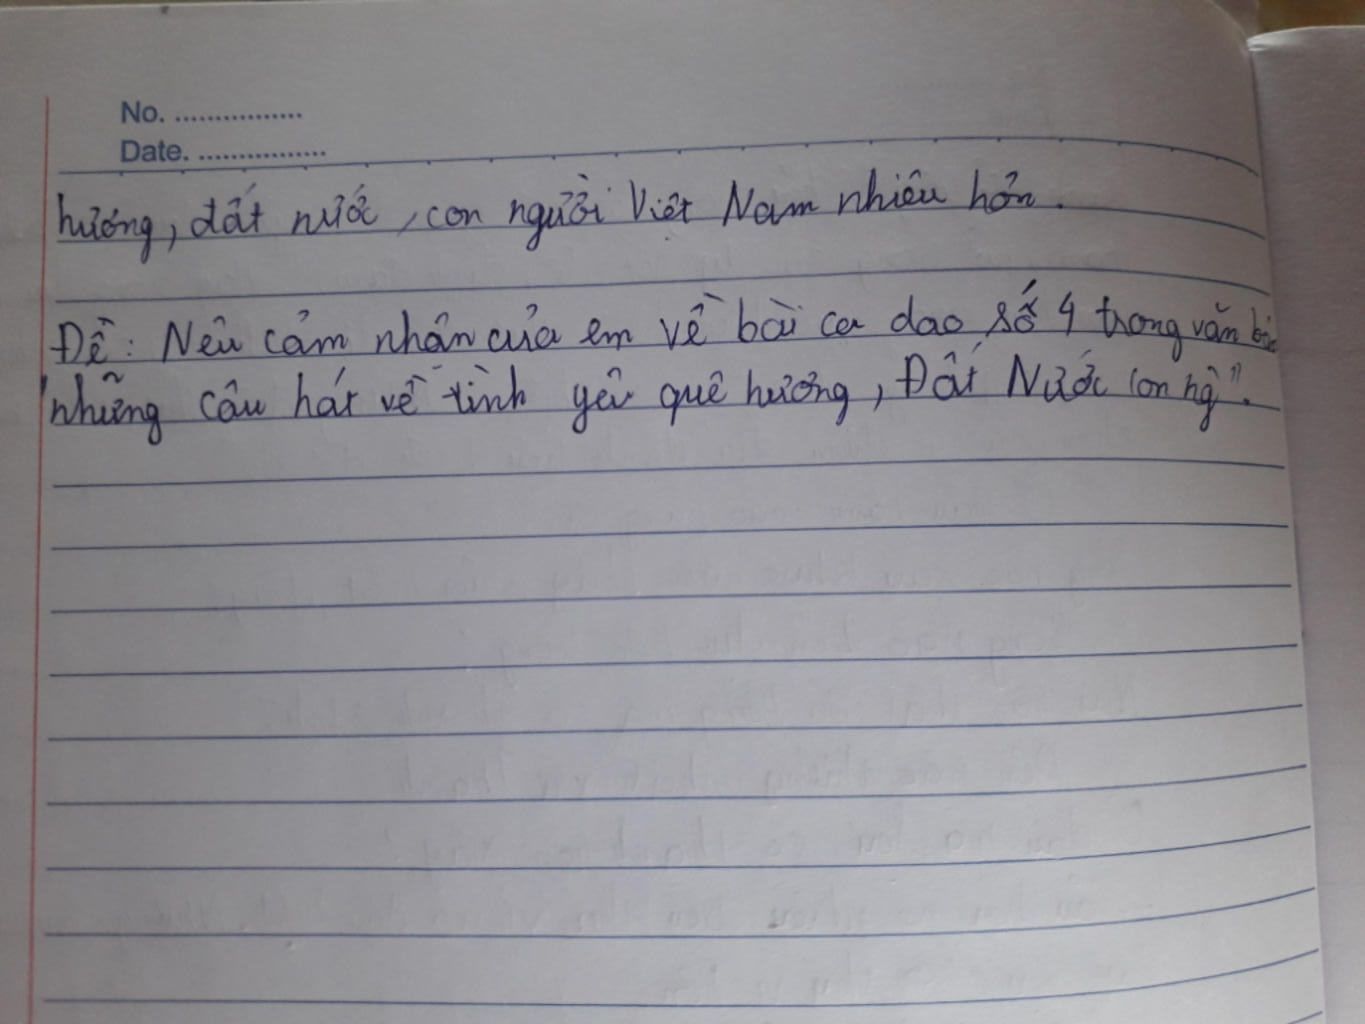 No. ................
Date. ................
hương, đất nước, con người Việt Nam nhiều hơn.
Đề: Nêu cảm nhận của em về bài ca dao số 4 trong văn bản
"những câu hát về tình yêu quê hương, Đất Nước con ng".